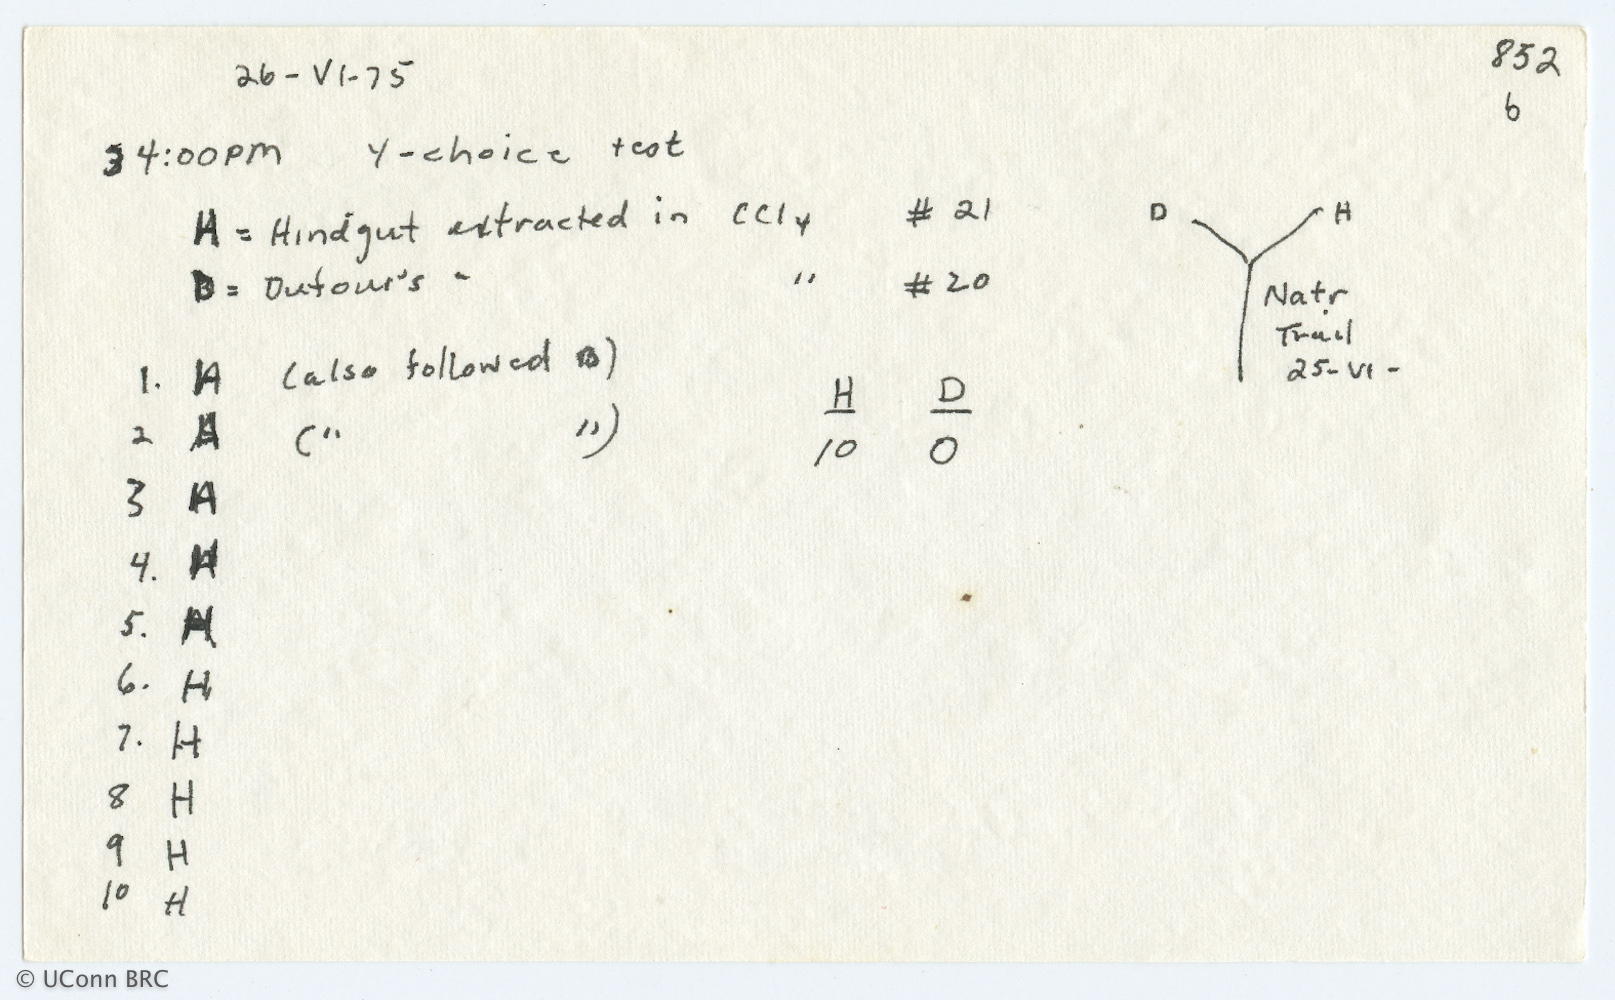 852
6
26-VI-75
4:00PM Y-choice test
H = Hindgut extracted in CCl4 # 21
D = Dufour's " " # 20
D H
Natr
Trail
25-VI-
1. H (also followed D)
2 H (" ")
3 H
4. H
5. H
6. H
7. H
8 H
9 H
10 H
H D
10 0
© UConn BRC